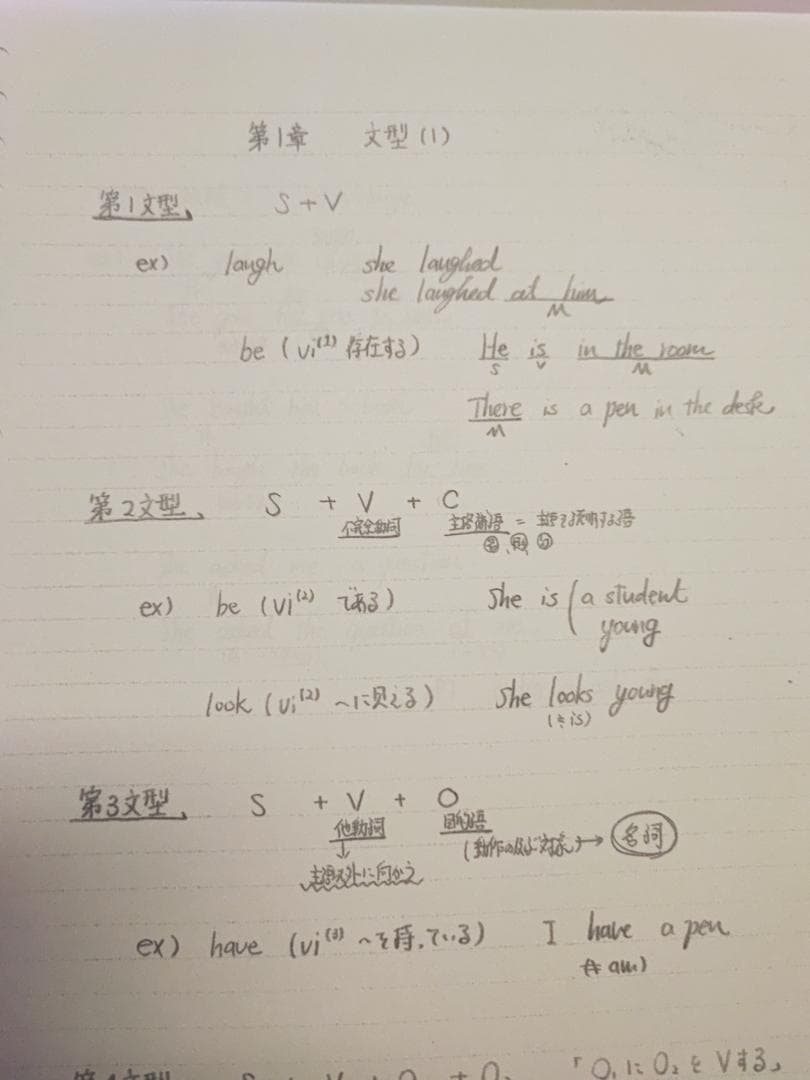 第1章 文型(1)
第1文型、 S + V
ex) laugh she laughed
she laughed at him
M
be (vi(1) 存在する) He is in the room
S V M
There is a pen in the desk
M
第2文型、 S + V + C
不完全動詞 主格補語 = 主語を説明する語
名、形
ex) be (vi(2) である) She is ( a student
young
look (vi(2) 〜に見える) She looks young
(≒ is)
第3文型、 S + V + O
他動詞 目的語
(動作の及ぶ対象) → 名詞
↓
主語以外に向かう
ex) have (vi(3) 〜を持っている) I have a pen
(≠ am)
第4文型 S + V + O₁ + O₂ 「O₁にO₂をVする」